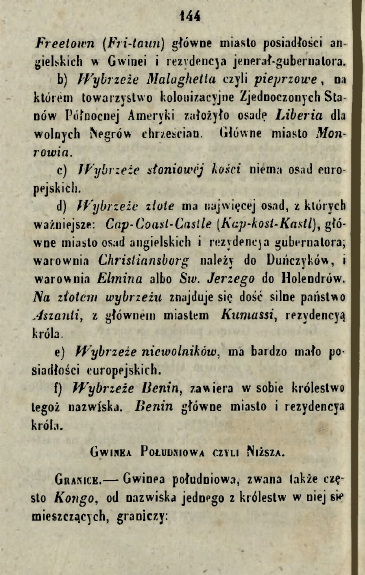 144
Freetown (Fri-taun) główne miasto posiadłości an-
gielskich w Gwinei i rezydencja jenerał-gubernatora.
b) Wybrzeże Malaghetta czyli pieprzowe, na
którém towarzystwo kolonizacyjne Zjednoczonych Sta-
nów Północnej Ameryki założyło osadę Liberia dla
wolnych Negrów chrześcian. Główne miasto Mon-
rowia.
c) Wybrzeże słoniowéj kości niema osad euro-
pejskich.
d) Wybrzeże złote ma najwięcej osad, z których
ważniejsze: Cap-Coast-Castle (Kap-kost-Kastl), głó-
wne miasto osad angielskich i rezydencja gubernatora;
warownia Christiansborg należy do Duńczyków, i
warownia Elmina albo Sw. Jerzego do Holendrów.
Na złotem wybrzeżu znajduje się dość silne państwo
Aszanti, z głównem miastem Kumassi, rezydencyą
króla.
e) Wybrzeże niewolników, ma bardzo mało po-
siadłości europejskich.
f) Wybrzeże Benin, zawiera w sobie królestwo
tegoż nazwiska. Benin główne miasto i rezydencya
króla.
Gwinea Południowa czyli Niższa.
Granice.— Gwinea południowa, zwana także czę-
sto Kongo, od nazwiska jednego z królestw w niej się
mieszczących, graniczy: